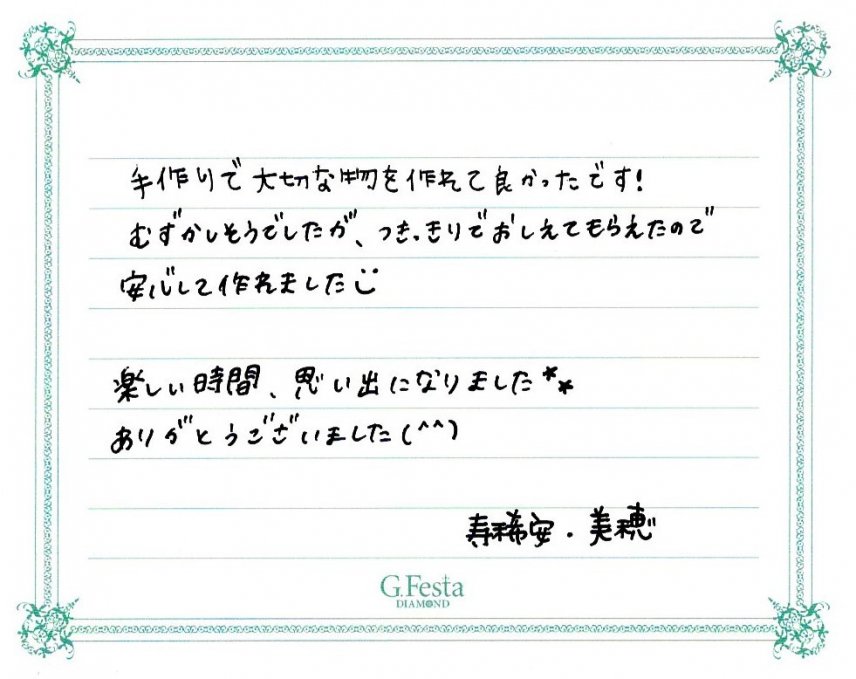 手作りで大切な物を作れて良かったです!
むずかしそうでしたが、つきっきりでおしえてもらえたので
安心して作れました
楽しい時間、思い出になりました**
ありがとうございました(^^)
寿稀安・美穂
G.Festa
DIAMOND